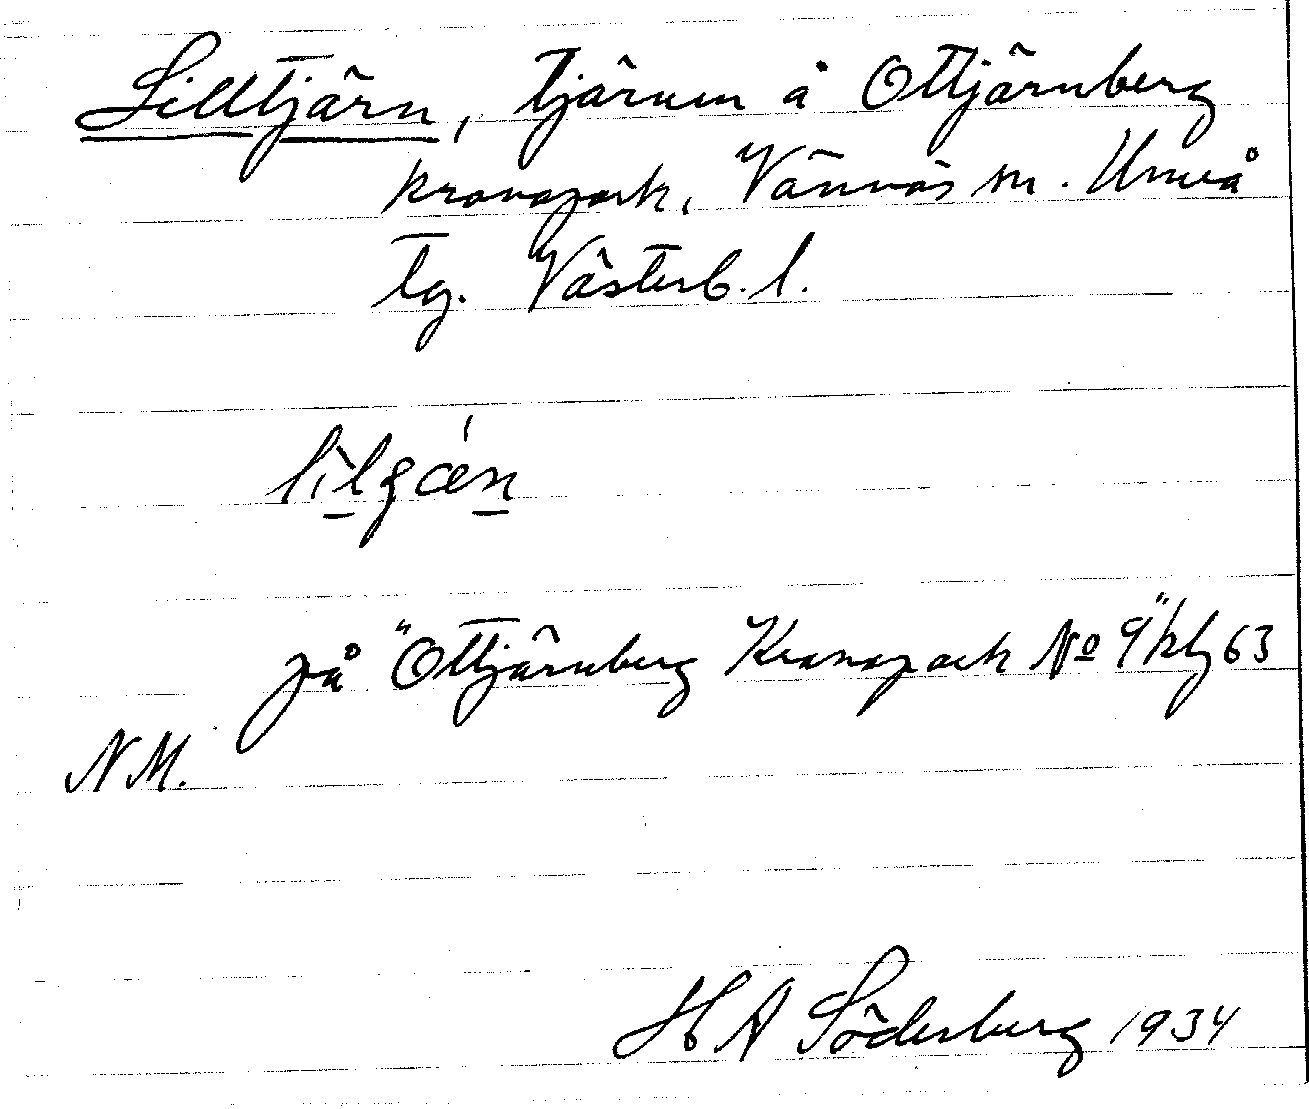 Lilltjärn, tjärnen å Ottjärnberg
kronopark, Vännäs sn. Umeå
tg. Västerb. l.
på "Ottjärnberg Kronopark No 9" klg 63
NM.
H A Söderberg 1934